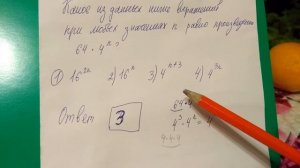 Какое из данных ниже выражений
при любых значениях n равно произведению
64 · 4ⁿ ?
1) 16²ⁿ 2) 16ⁿ 3) 4ⁿ⁺³ 4) 4³ⁿ
64·4
4³ · 4ⁿ = 4
Ответ 3
4·4·4